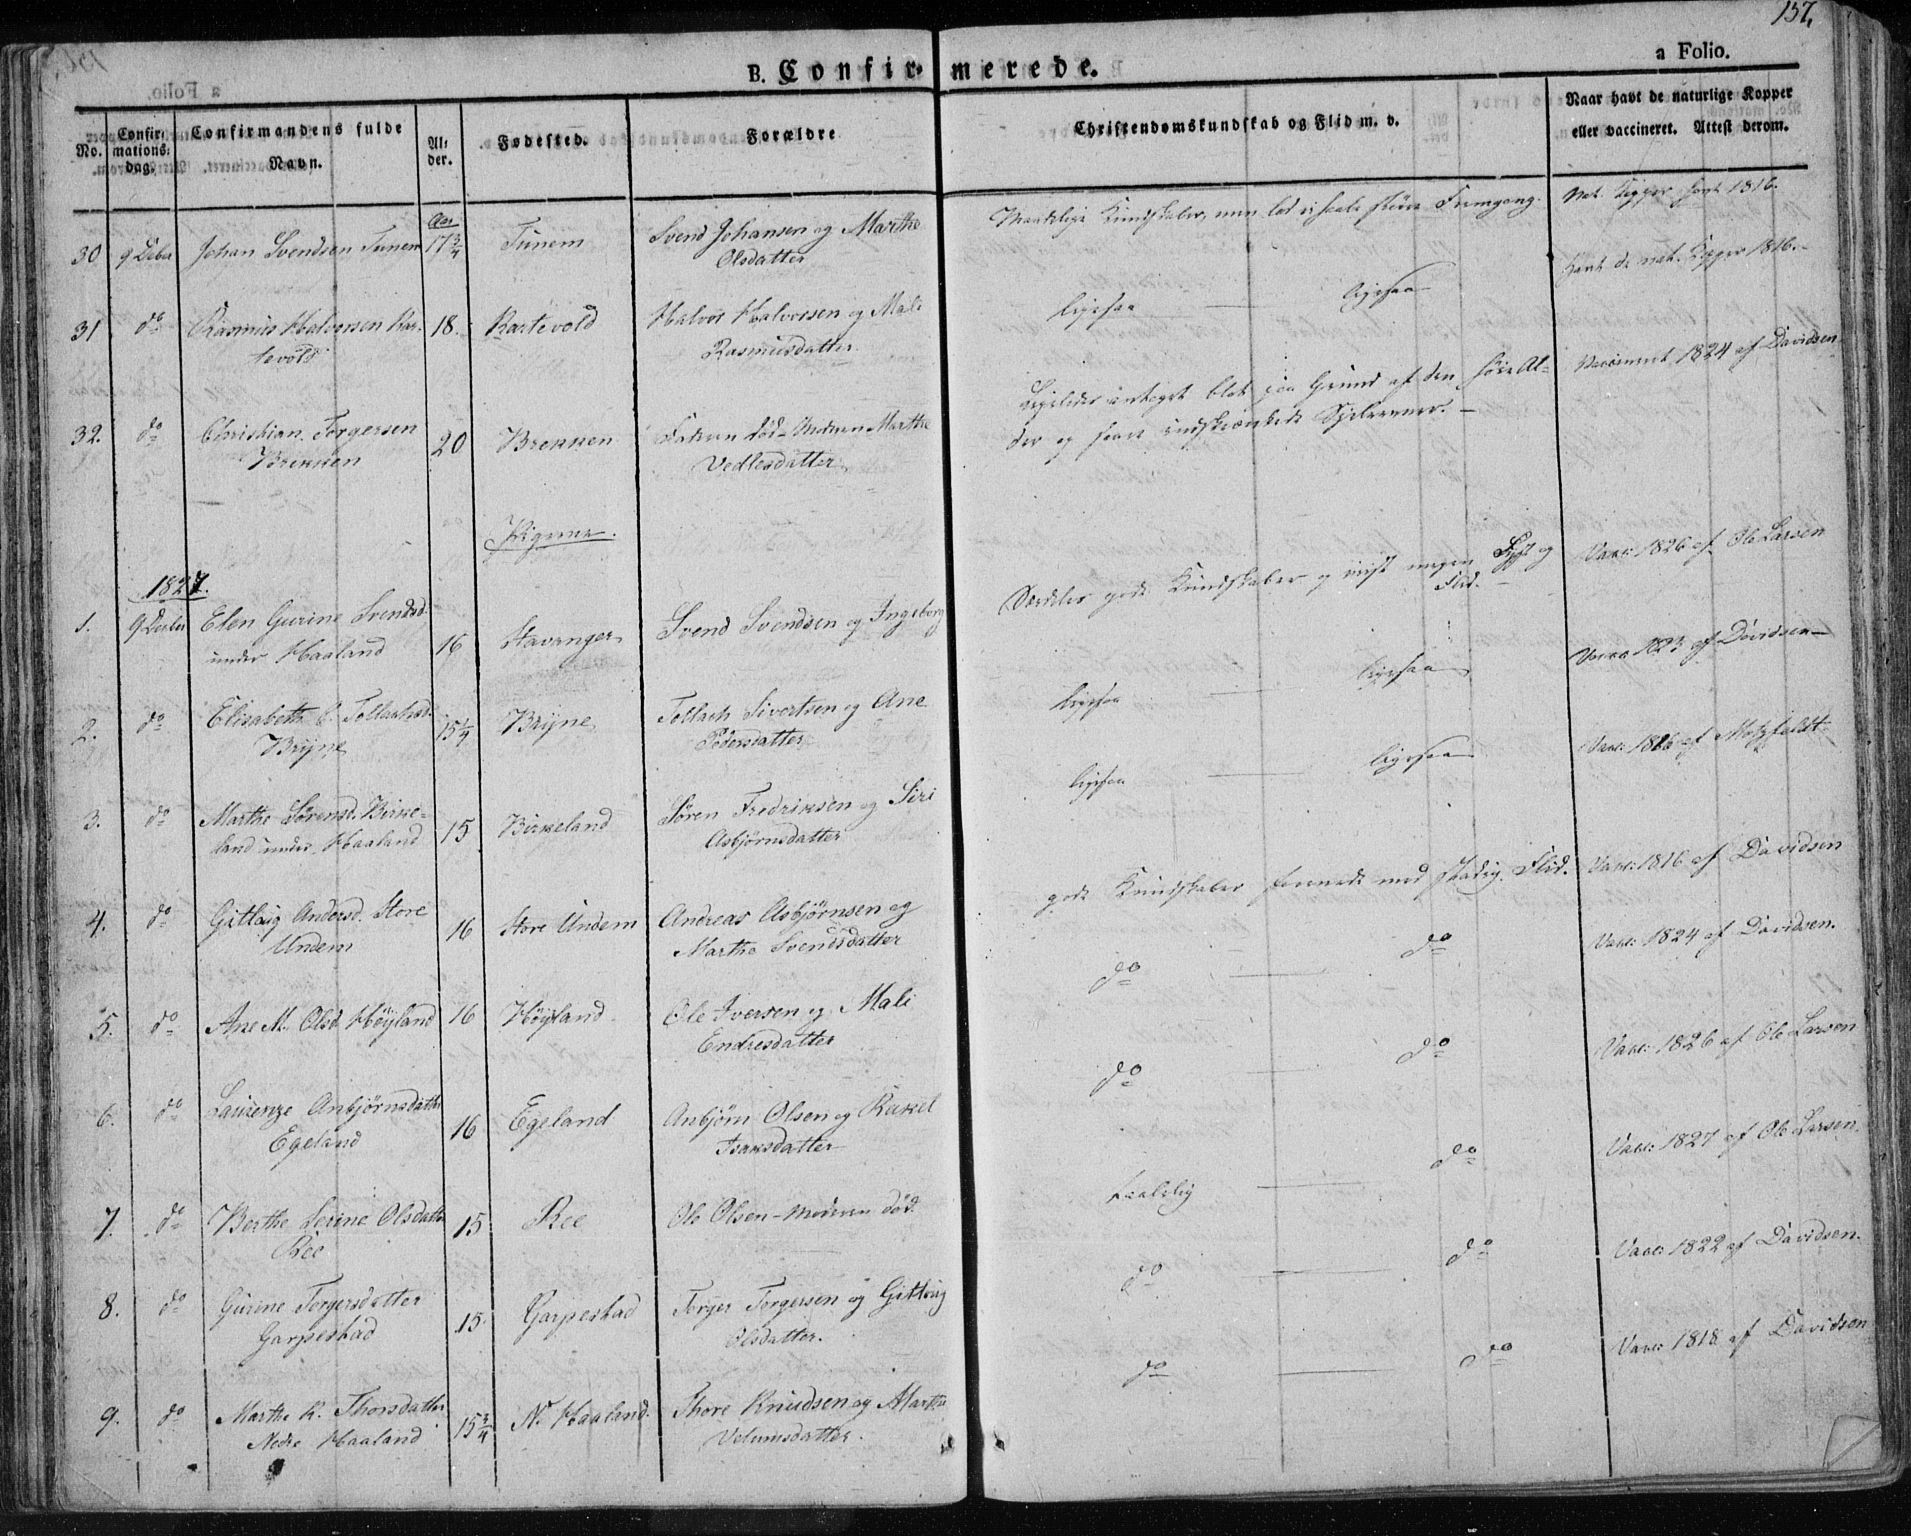 157.
a Folio.
B. Confirmerede.
No.
Confirmations: dag.
Confirmandens fulde Navn.
Alder.
Fødested.
Forældre
Christendomskundskab og Flid m. v.
Naar havt de naturlige Kopper eller vaccineret. Attest derom.
30 9 Deber Johan Svendsen Tunem Aar 17 3/4 Tunem Svend Johansen og Marthe Maadelige Kundskaber, men lod Fremgang. Nat. Kopper havt 1816.
Olsdatter
31 do Rasmus Halvorsen Kar- 18. Kartevold Halvor Halvorsen og Mali ligesaa — ligesaa havt de nat. Kopper 1816.
tevold Rasmusdatter
32. do Christian Torgersen 20 Brekken Faderen død - Moderen Marthe paa Grund af den høie Al- Vaccineret 1824 af Davidsen
Brekken Vedlesdatter der og indskrænkede Sjeleevner. —
Pigerne.
1827.
1. 9 Deber Elen Gurine Svendsd. 16 Stavanger Svend Svendsen og Ingeborg Særdeles gode Kundskaber og megen Lyst og Vacc: 1826 af Ole Larsen
under Haaland Flid.
2. do Elisabeth C. Tollachsd. 15 1/4 Bryne Tollach Sivertsen og Ane ligesaa — ligesaa Vacc: 1823 af Davidsen
Bryne Pedersdatter
3. do Marthe Sørensd. Birke- 15 Birkeland Søren Fredriksen og Siri ligesaa — ligesaa Vacc: 1816 af Motzfeldt
land under Haaland Asbjørnsdatter
4. do Gitlaug Andersd. Store 16 Store Undem Andreas Asbjørnsen og gode Kundskaber forenede med stadig Flid. Vacc: 1816 af Davidsen
Undem Marthe Svendsdatter
5. do Ane M. Olsd. Høyland 16 Høyland Ole Iversen og Mali do — do Vacc: 1824 af Davidsen.
Endresdatter
6. do Laurenze Anbjørnsdatter 16 Egeland Anbjørn Olsen og Rakel do do Vacc: 1826 af Ole Larsen
Egeland Isaksdatter
7. do Berthe Serine Olsdatter 15 Ree Ole Olsen - Moderen død. taalelig — do Vacc: 1827 af Ole Larsen
Ree
8. do Gurine Torgersdatter 15. Garpestad Torger Torgersen og Gitlaug do — do Vacc: 1822 af Davidsen.
Garpestad Olsdatter.
9. do Marthe K. Thorsdatter 15 3/4 N. Haaland. Thore Knudsen og Marthe do — do Vacc: 1818 af Davidsen
Nedre Haaland Velumsdatter.